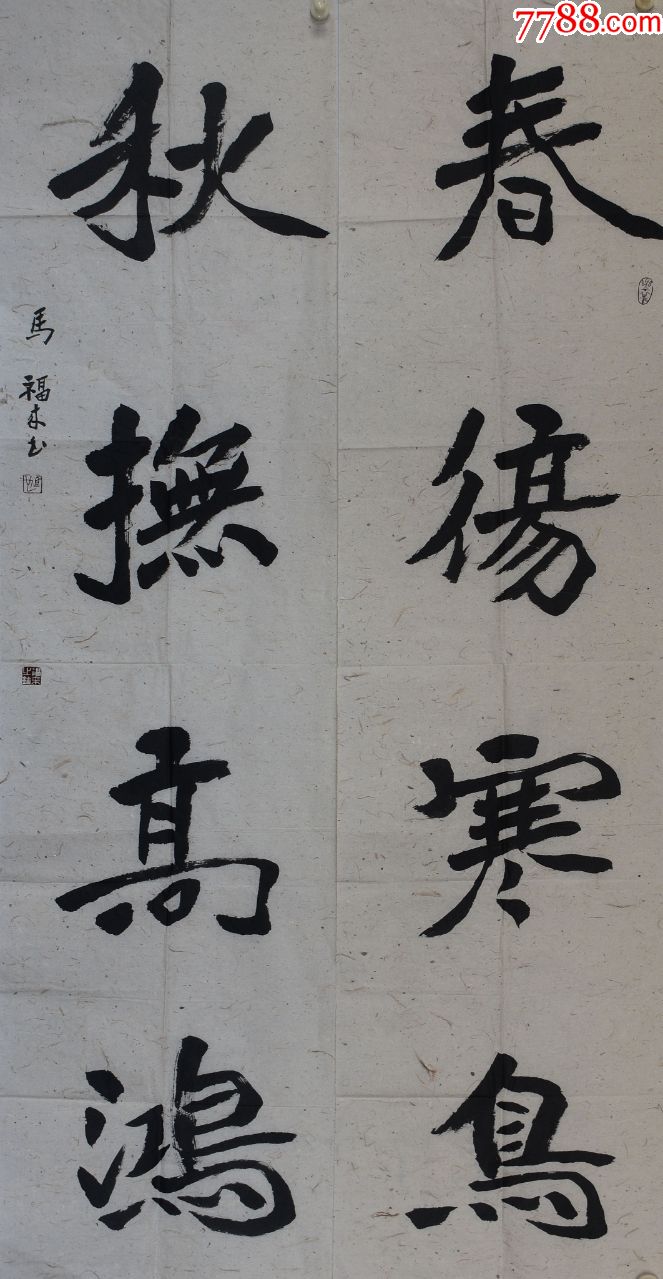 7788.com
春傷寒鳥
秋撫高鴻
馬福来书